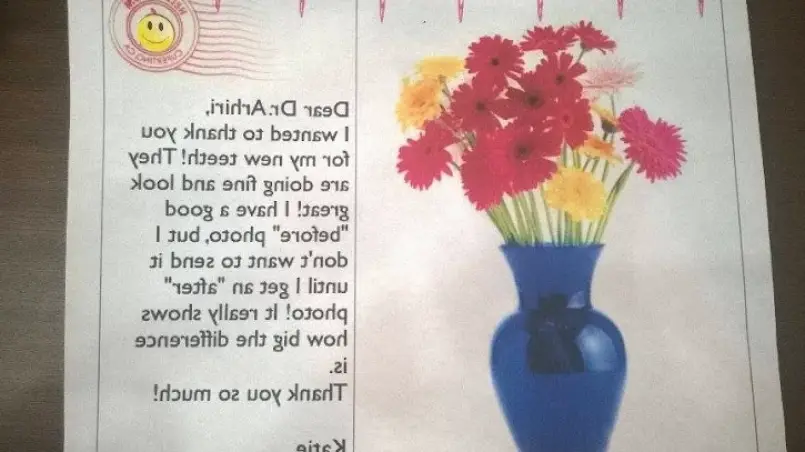 CUPERTINO, CA
Dear Dr.Arhiri,
I wanted to thank you
for my new teeth! They
are doing fine and look
great! I have a good
"before" photo, but I
don't want to send it
until I get an "after"
photo! It really shows
how big the difference
is.
Thank you so much!
Katie